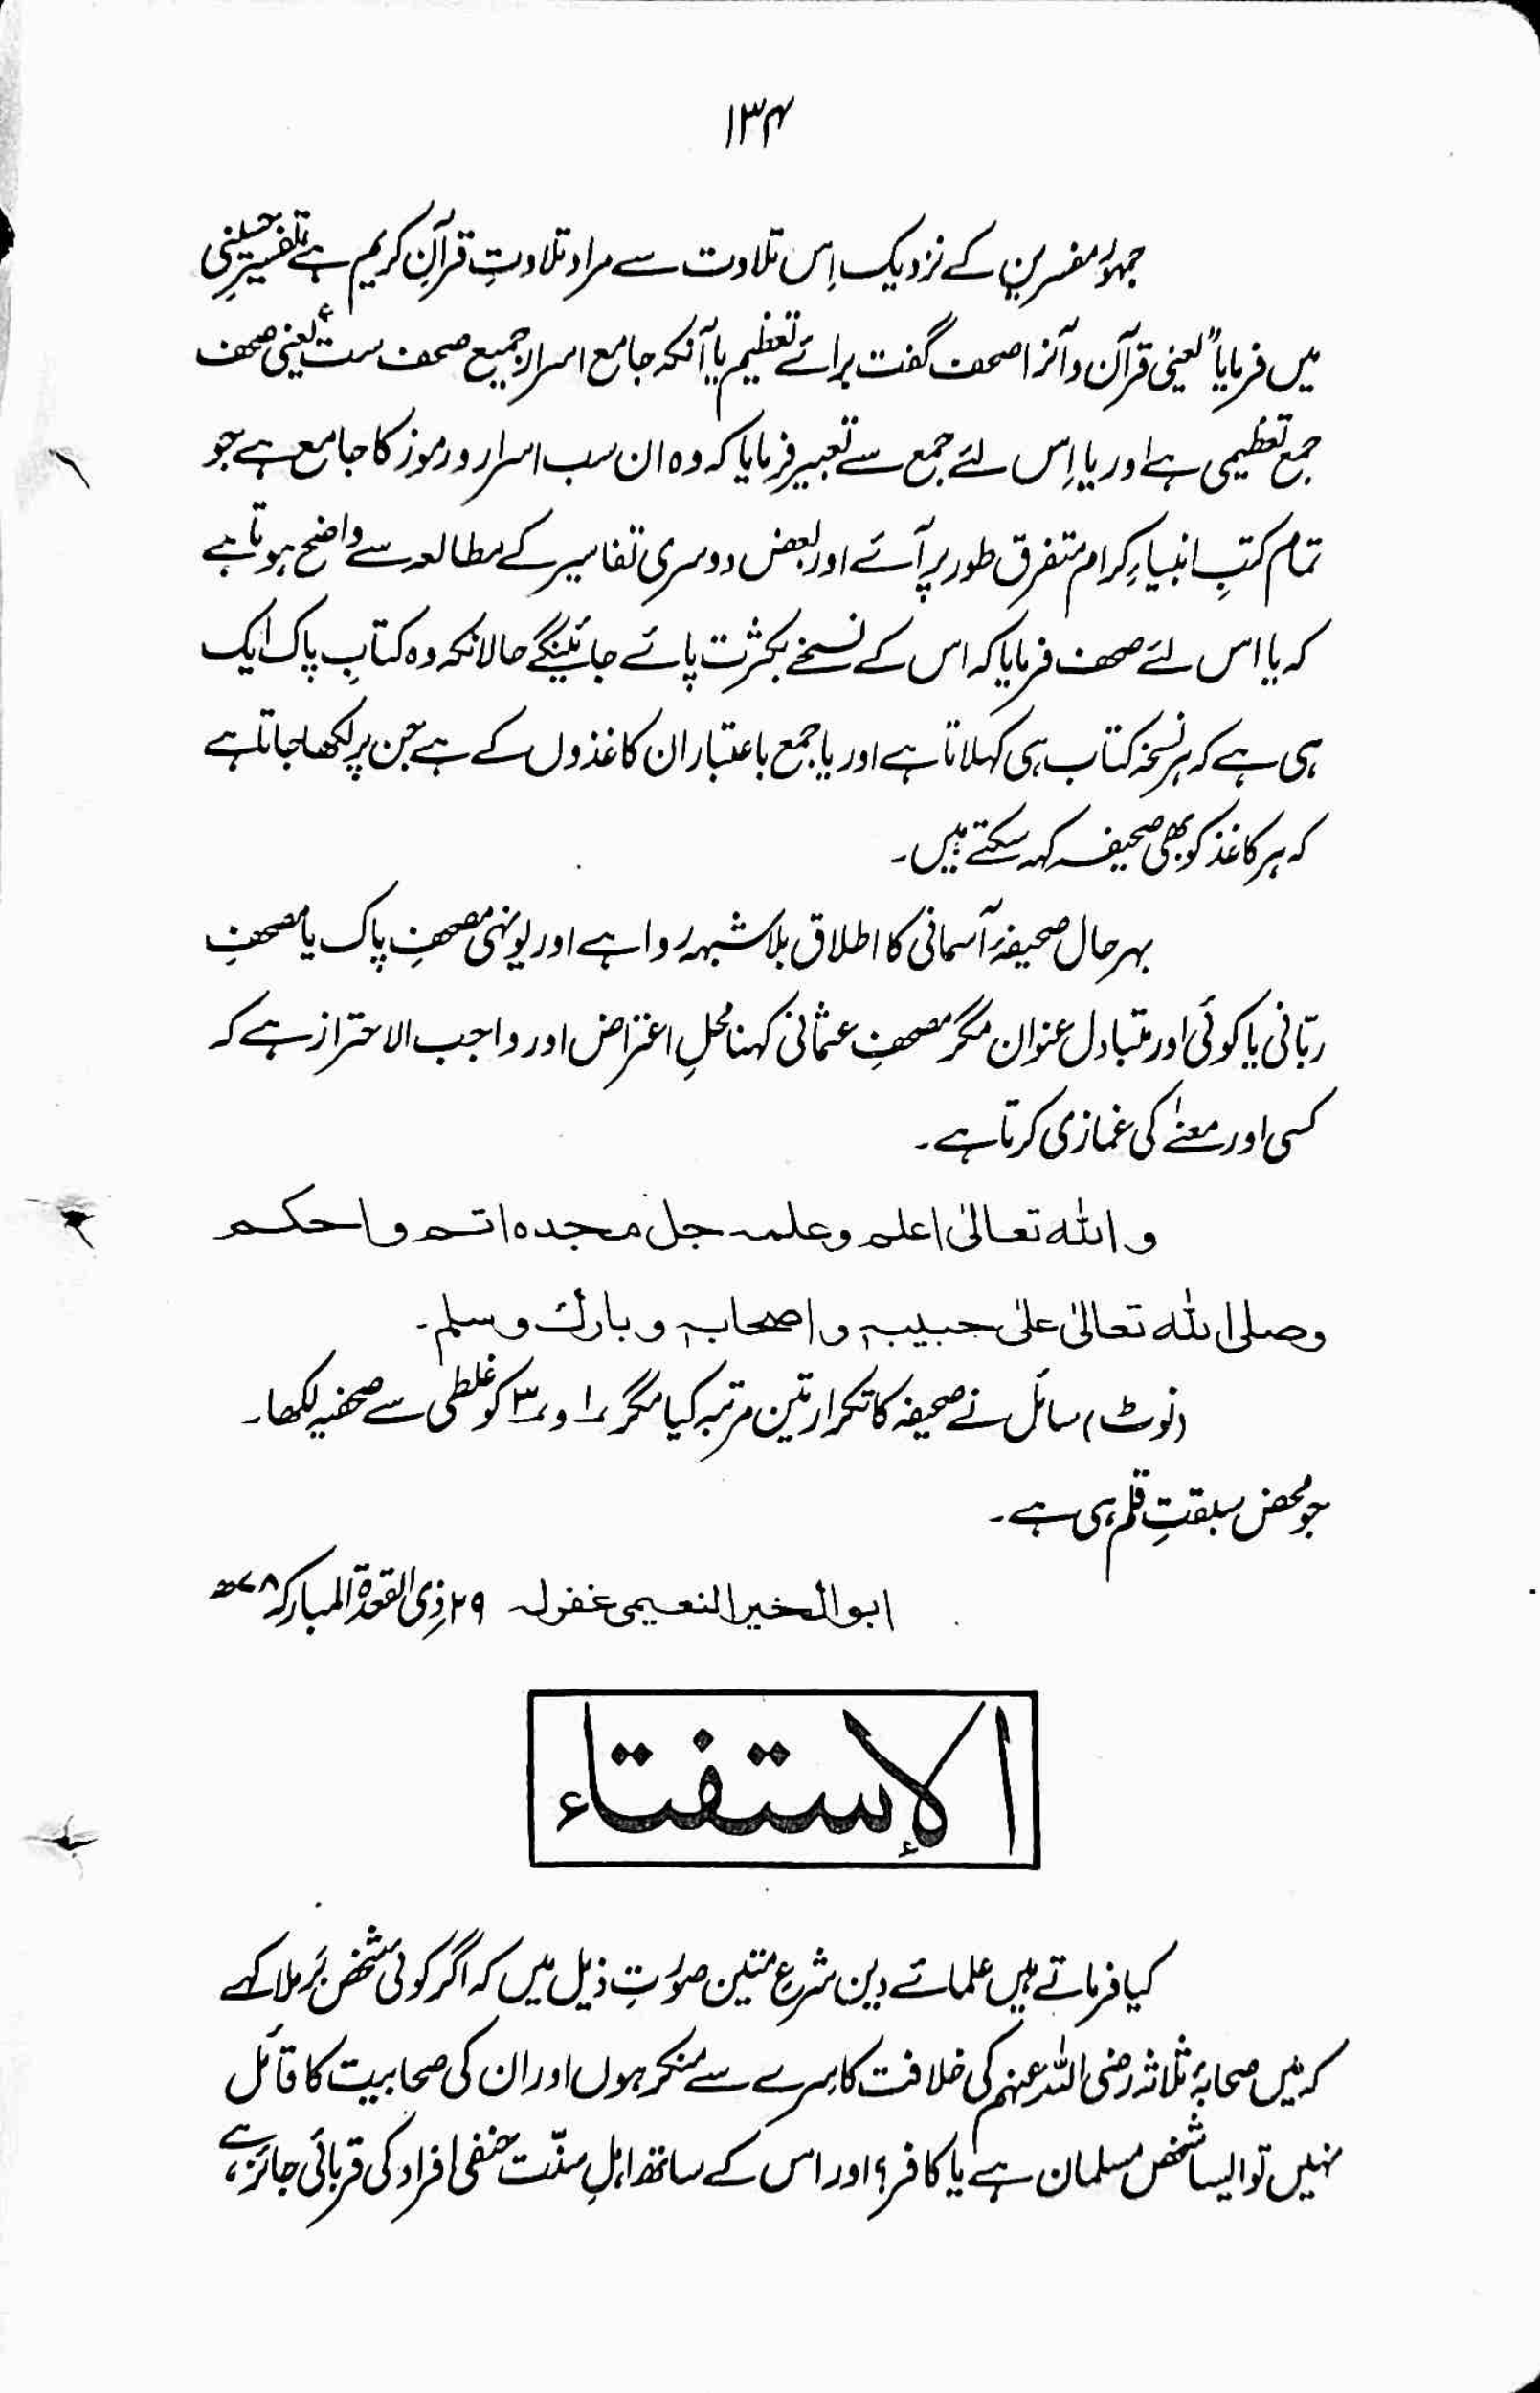 ۱۳۴
جمہور مفسرین کے نزدیک اِس تلاوت سے مراد تلاوتِ قرآنِ کریم ہے تفسیرِ حسینی
میں فرمایا ”یعنی قرآن وآنرا صحف گفت برائے تعظیم یا آنکہ جامع اسرار جمیع صحف ست“ یعنی صحف
جمع تعظیمی ہے اور یا اِس لئے جمع سے تعبیر فرمایا کہ وہ ان سب اسرار و رموز کا جامع ہے جو
تمام کتبِ انبیاءِ کرام متفرق طور پر آئے اور بعض دوسری تفاسیر کے مطالعہ سے واضح ہوتا ہے
کہ یا اس لئے صحف فرمایا کہ اس کے نسخے بکثرت پائے جائینگے حالانکہ وہ کتابِ پاک ایک
ہی ہے کہ ہر نسخہ کتاب ہی کہلاتا ہے اور یا جمع باعتبار ان کاغذوں کے ہے جن پر لکھا جاتا ہے
کہ ہر کاغذ کو بھی صحیفہ کہہ سکتے ہیں۔
بہرحال صحیفۂ آسمانی کا اطلاق بلاشبہہ روا ہے اور یونہی مصحفِ پاک یا مصحفِ
ربّانی یا کوئی اور متبادل عنوان مگر مصحفِ عثمانی کہنا محلِ اعتراض اور واجب الاحتراز ہے کہ
کسی اور معنےٰ کی غمازی کرتا ہے۔
واللہ تعالیٰ اعلم وعلمہ جل مجدہ اتم واحکم
وصلی اللہ تعالیٰ علیٰ حبیبہ واصحابہ وبارك وسلم۔
(نوٹ) سائل نے صحیفہ کا تکرار تین مرتبہ کیا مگر ۱؎ و ۳؎ کو غلطی سے صحفیہ لکھا۔
جو محض سبقتِ قلم ہی ہے۔
ابوالخیر النعیمی غفرلہ ۲۹ ذی القعدۃ المبارکہ ۷۸ھ
الإستفتاء
کیا فرماتے ہیں علمائے دین شرعِ متین صورتِ ذیل میں کہ اگر کوئی شخص بَرملا کہے
کہ میں صحابۂ ثلاثہ رضی اللہ عنہم کی خلافت کا سِرے سے منکر ہوں اور ان کی صحابیت کا قائل
نہیں تو ایسا شخص مسلمان ہے یا کافر؟ اور اس کے ساتھ اہلِ سنّت حنفی افراد کی قربانی جائز ہے،